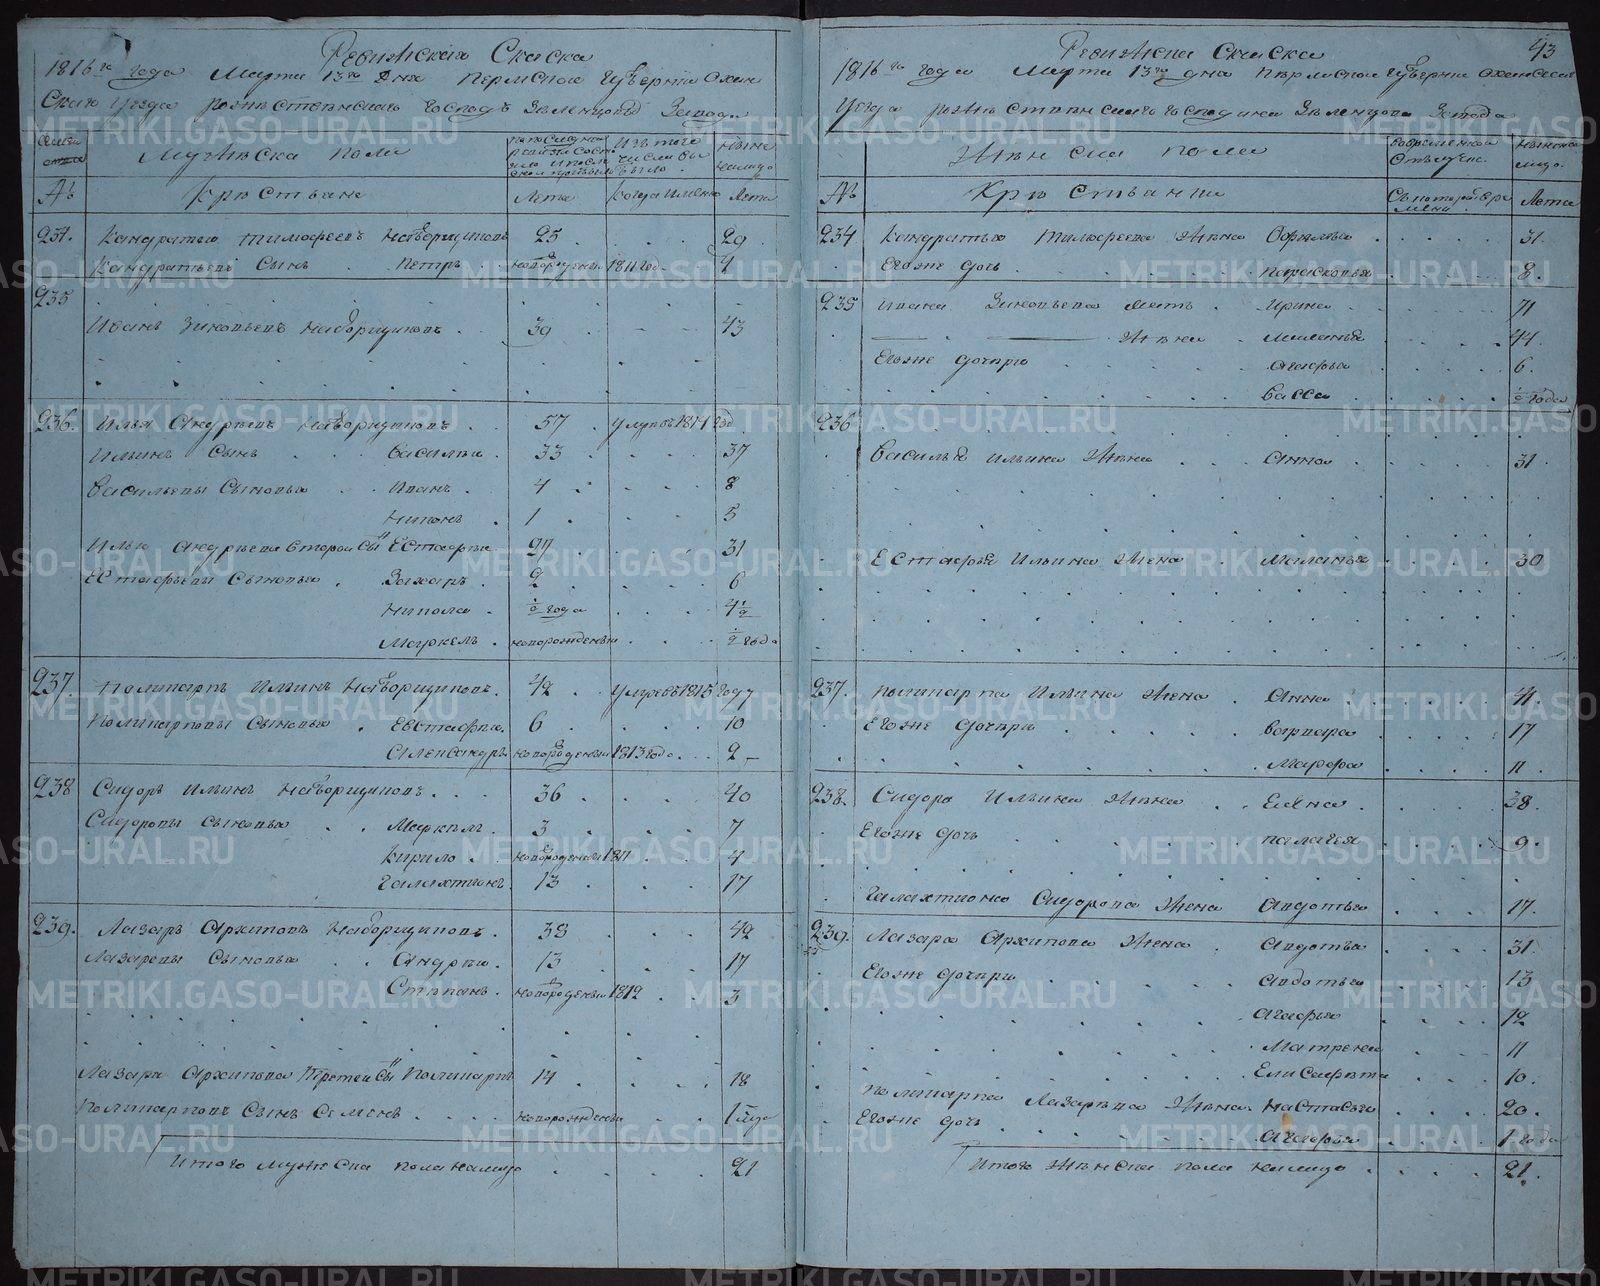 Ревижская Скаска
1816го года Марта 13го Дня Пермской Губернии Охан
Скаго уезда рожественскаго господъ Заводу
Мужеска пола
№ Крестьяне Лета когда именно Лета
234. Кандратей Тимофеевъ Наборщиковъ 25 29
Кандратьевъ Сынъ Петръ новорожденъ 1811 год. 4
235
Иванъ Зиновьевъ Наборщиковъ 39 43
236. Илья Андреевъ Наборщиковъ 57 умре въ 1814 год
Ильинъ Сынъ Василеи 33 37
Васильевы Сыновья Иванъ 4 8
Никонъ 1 5
Ильи Андреева второй Сынъ Естафеи 27 31
Естафьевы Сыновья Захаръ 2 6
Никола ½ года 4½
Маркелъ новорожденъ ½ года
237. Поликарпъ Ильинъ Наборщиковъ 42 умре въ 1815 году
Поликарповы Сыновья Евстафеи 6 10
Александръ новорожденъ 1813 года 2
238 Сидоръ Ильинъ Наборщиковъ 36 40
Сидоровы Сыновья Маркелъ 3 7
Кирило новорожденъ 1811 4
Галахтионъ 13 17
239. Лазарь Архиповъ Наборщиковъ 38 42
Лазаревы Сыновья Андреи 13 17
Степанъ новорожденъ 1812 3
Лазаря Архипова Третей Сынъ Поликарпъ 14 18
Поликарповъ Сынъ Семенъ новорожденъ 1 году
Итого мужеска пола налицо 21
43
Ревижская Скаска
1816го года Марта 13го дня Пермской Губернии Оханскаго
Уезда рожественскаго господина Завода
Женска пола
№ Крестьянки Лета
234 Кандратья Тимофеева Жена Софилья 31.
Егоже дочь парасковья 8.
235 Ивана Зиновьева мать Ирина 71
Жена Миланья 44
Егоже дочери Агафья 6.
Васса ½ года
236
Василья Ильина Жена Анна 31
Естафья Ильина Жена Миланья 30
237. Поликарпа Ильина Жена Анна 41.
Егоже дочери Варвара 17
Марфа 11.
238. Сидора Ильина Жена Елена 38.
Егоже дочь палагея 9.
Галахтиона Сидорова Жена Авдотья 17.
239. Лазаря Архипова Жена Авдотья 31.
Егоже дочери Авдотья 13
Агафья 12
Матрена 11
Елисафета 10.
Поликарпа Лазарева Жена Настасья 20.
Егоже дочь Агафья 1 года
Итого Женска пола налицо 21.
METRIKI.GASO-URAL.RU